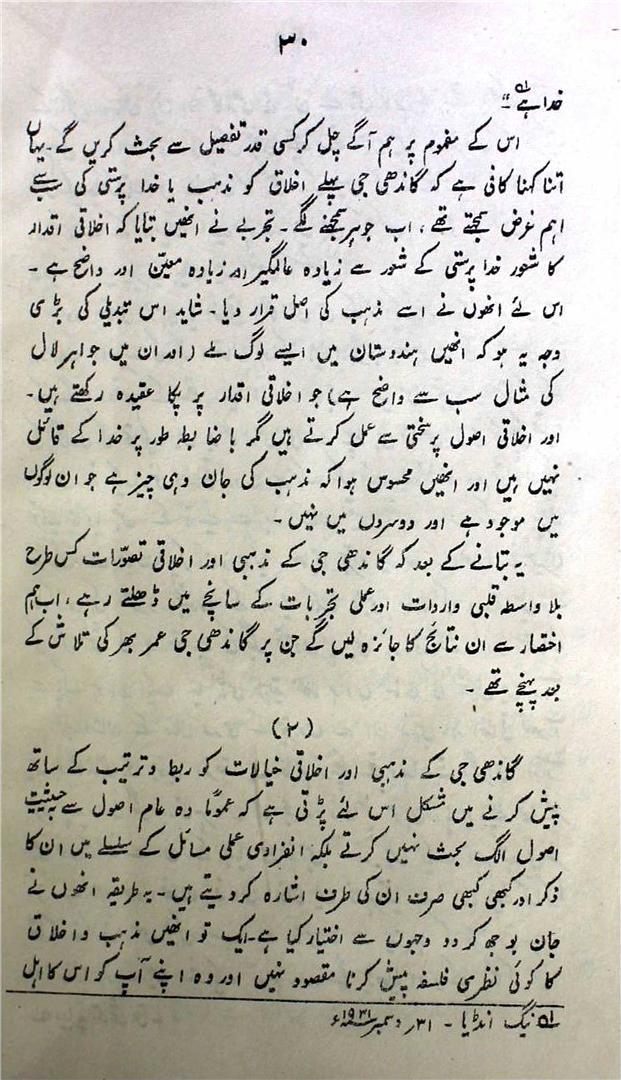 ۳۰
خدا ہے ۱ــہ"
اس کے مفہوم پر ہم آگے چل کر کسی قدر تفصیل سے بحث کریں گے۔ یہاں
اتنا کہنا کافی ہے کہ گاندھی جی پہلے اخلاق کو مذہب یا خدا پرستی کی سب سے
اہم غرض سمجھتے تھے، اب جوہر سمجھنے لگے۔ تجربے نے انھیں بتایا کہ اخلاقی اقدار
کا شعور خدا پرستی کے شعور سے زیادہ عالمگیر اور زیادہ معیّن اور واضح ہے۔
اس لئے انھوں نے اسے مذہب کی اصل قرار دیا۔ شاید اس تبدیلی کی بڑی
وجہ یہ ہو کہ انھیں ہندوستان میں ایسے لوگ ملے (اور ان میں جواہر لال
کی مثال سب سے واضح ہے) جو اخلاقی اقدار پر پکا عقیدہ رکھتے ہیں۔
اور اخلاقی اصول پر سختی سے عمل کرتے ہیں گمر با ضابطہ طور پر خدا کے قائل
نہیں ہیں اور انھیں محسوس ہوا کہ مذہب کی جان وہی چیز ہے جو ان لوگوں
میں موجود ہے اور دوسروں میں نہیں۔
یہ بتانے کے بعد کہ گاندھی جی کے مذہبی اور اخلاقی تصوّرات کس طرح
بلا واسطہ قلبی واردات اور عملی تجربات کے سانچے میں ڈھلتے رہے، اب ہم
اختصار سے ان نتائج کا جائزہ لیں گے جن پر گاندھی جی عمر بھر کی تلاش کے
بعد پہنچے تھے۔
(۲)
گاندھی جی کے مذہبی اور اخلاقی خیالات کو ربط و ترتیب کے ساتھ
پیش کرنے میں مشکل اس لئے پڑتی ہے کہ عموماً وہ عام اصول سے بحیثیت
اصول الگ بحث نہیں کرتے بلکہ انفرادی عملی مسائل کے سلسلے میں ان کا
ذکر اور کبھی کبھی صرف ان کی طرف اشارہ کر دیتے ہیں۔ یہ طریقہ انھوں نے
جان بوجھ کر دو وجہوں سے اختیار کیا ہے۔ ایک تو انھیں مذہب و اخلاق
کا کوئی نظری فلسفہ پیش کرنا مقصود نہیں اور وہ اپنے آپ کو اس کا اہل
۱ــہ ینگ انڈیا - ۳۱ر دسمبر ۱۹۳۱ء